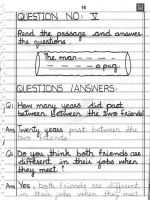 15
QUESTION NO: V
Read the passage and answer
the questions.
The man - - - - -
- - - - - a pug.
QUESTIONS /ANSWERS:
Q: How many years did past
between between the two friends?
Ans Twenty years past between the
two friends.
Q: Do you think both friends are
different in their jobs when
they meet?
Ans: Yes, both friends are different
in their jobs when they meet.